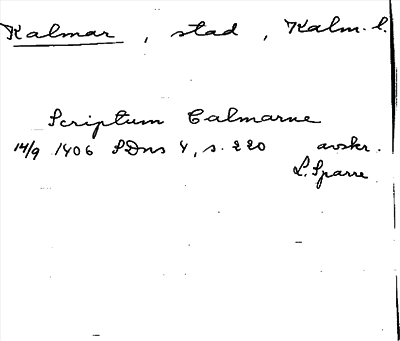 Kalmar, stad, Kalm. l.
Scriptum Calmarne
14/9 1406 SDns 4, s. 220 avskr.
L. Sparre